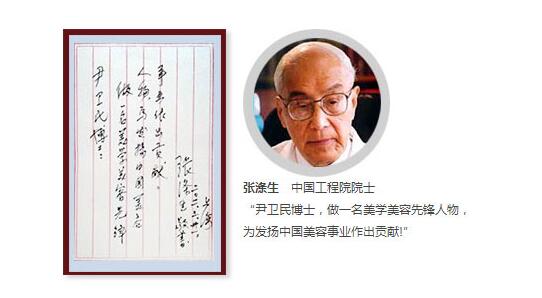 尹卫民博士:
做一名美学美容先锋
人物,为发扬中国美容
事业作出贡献。
张涤生敬书
上海
张涤生 中国工程院院士
“尹卫民博士，做一名美学美容先锋人物，
为发扬中国美容事业作出贡献!”